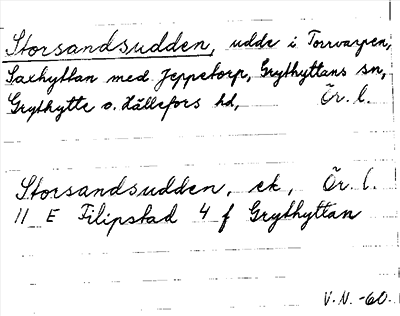 Storsandsudden, udde i Torrvarpen,
Saxhyttan med Jeppetorp, Grythyttans sn,
Grythytte o. Hällefors hd, Ör. l.
Storsandsudden, ek, Ör. l.
11 E Filipstad 4 f Grythyttan
V.N. -60.